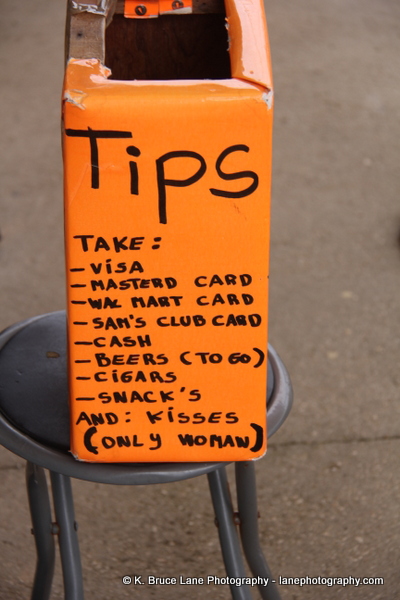 Tips
TAKE:
- VISA
- MASTERD CARD
- WAL MART CARD
- SAM'S CLUB CARD
- CASH
- BEERS (TO GO)
- CIGARS
- SNACK'S
AND: KISSES
(ONLY WOMAN)
© K. Bruce Lane Photography - lanephotography.com